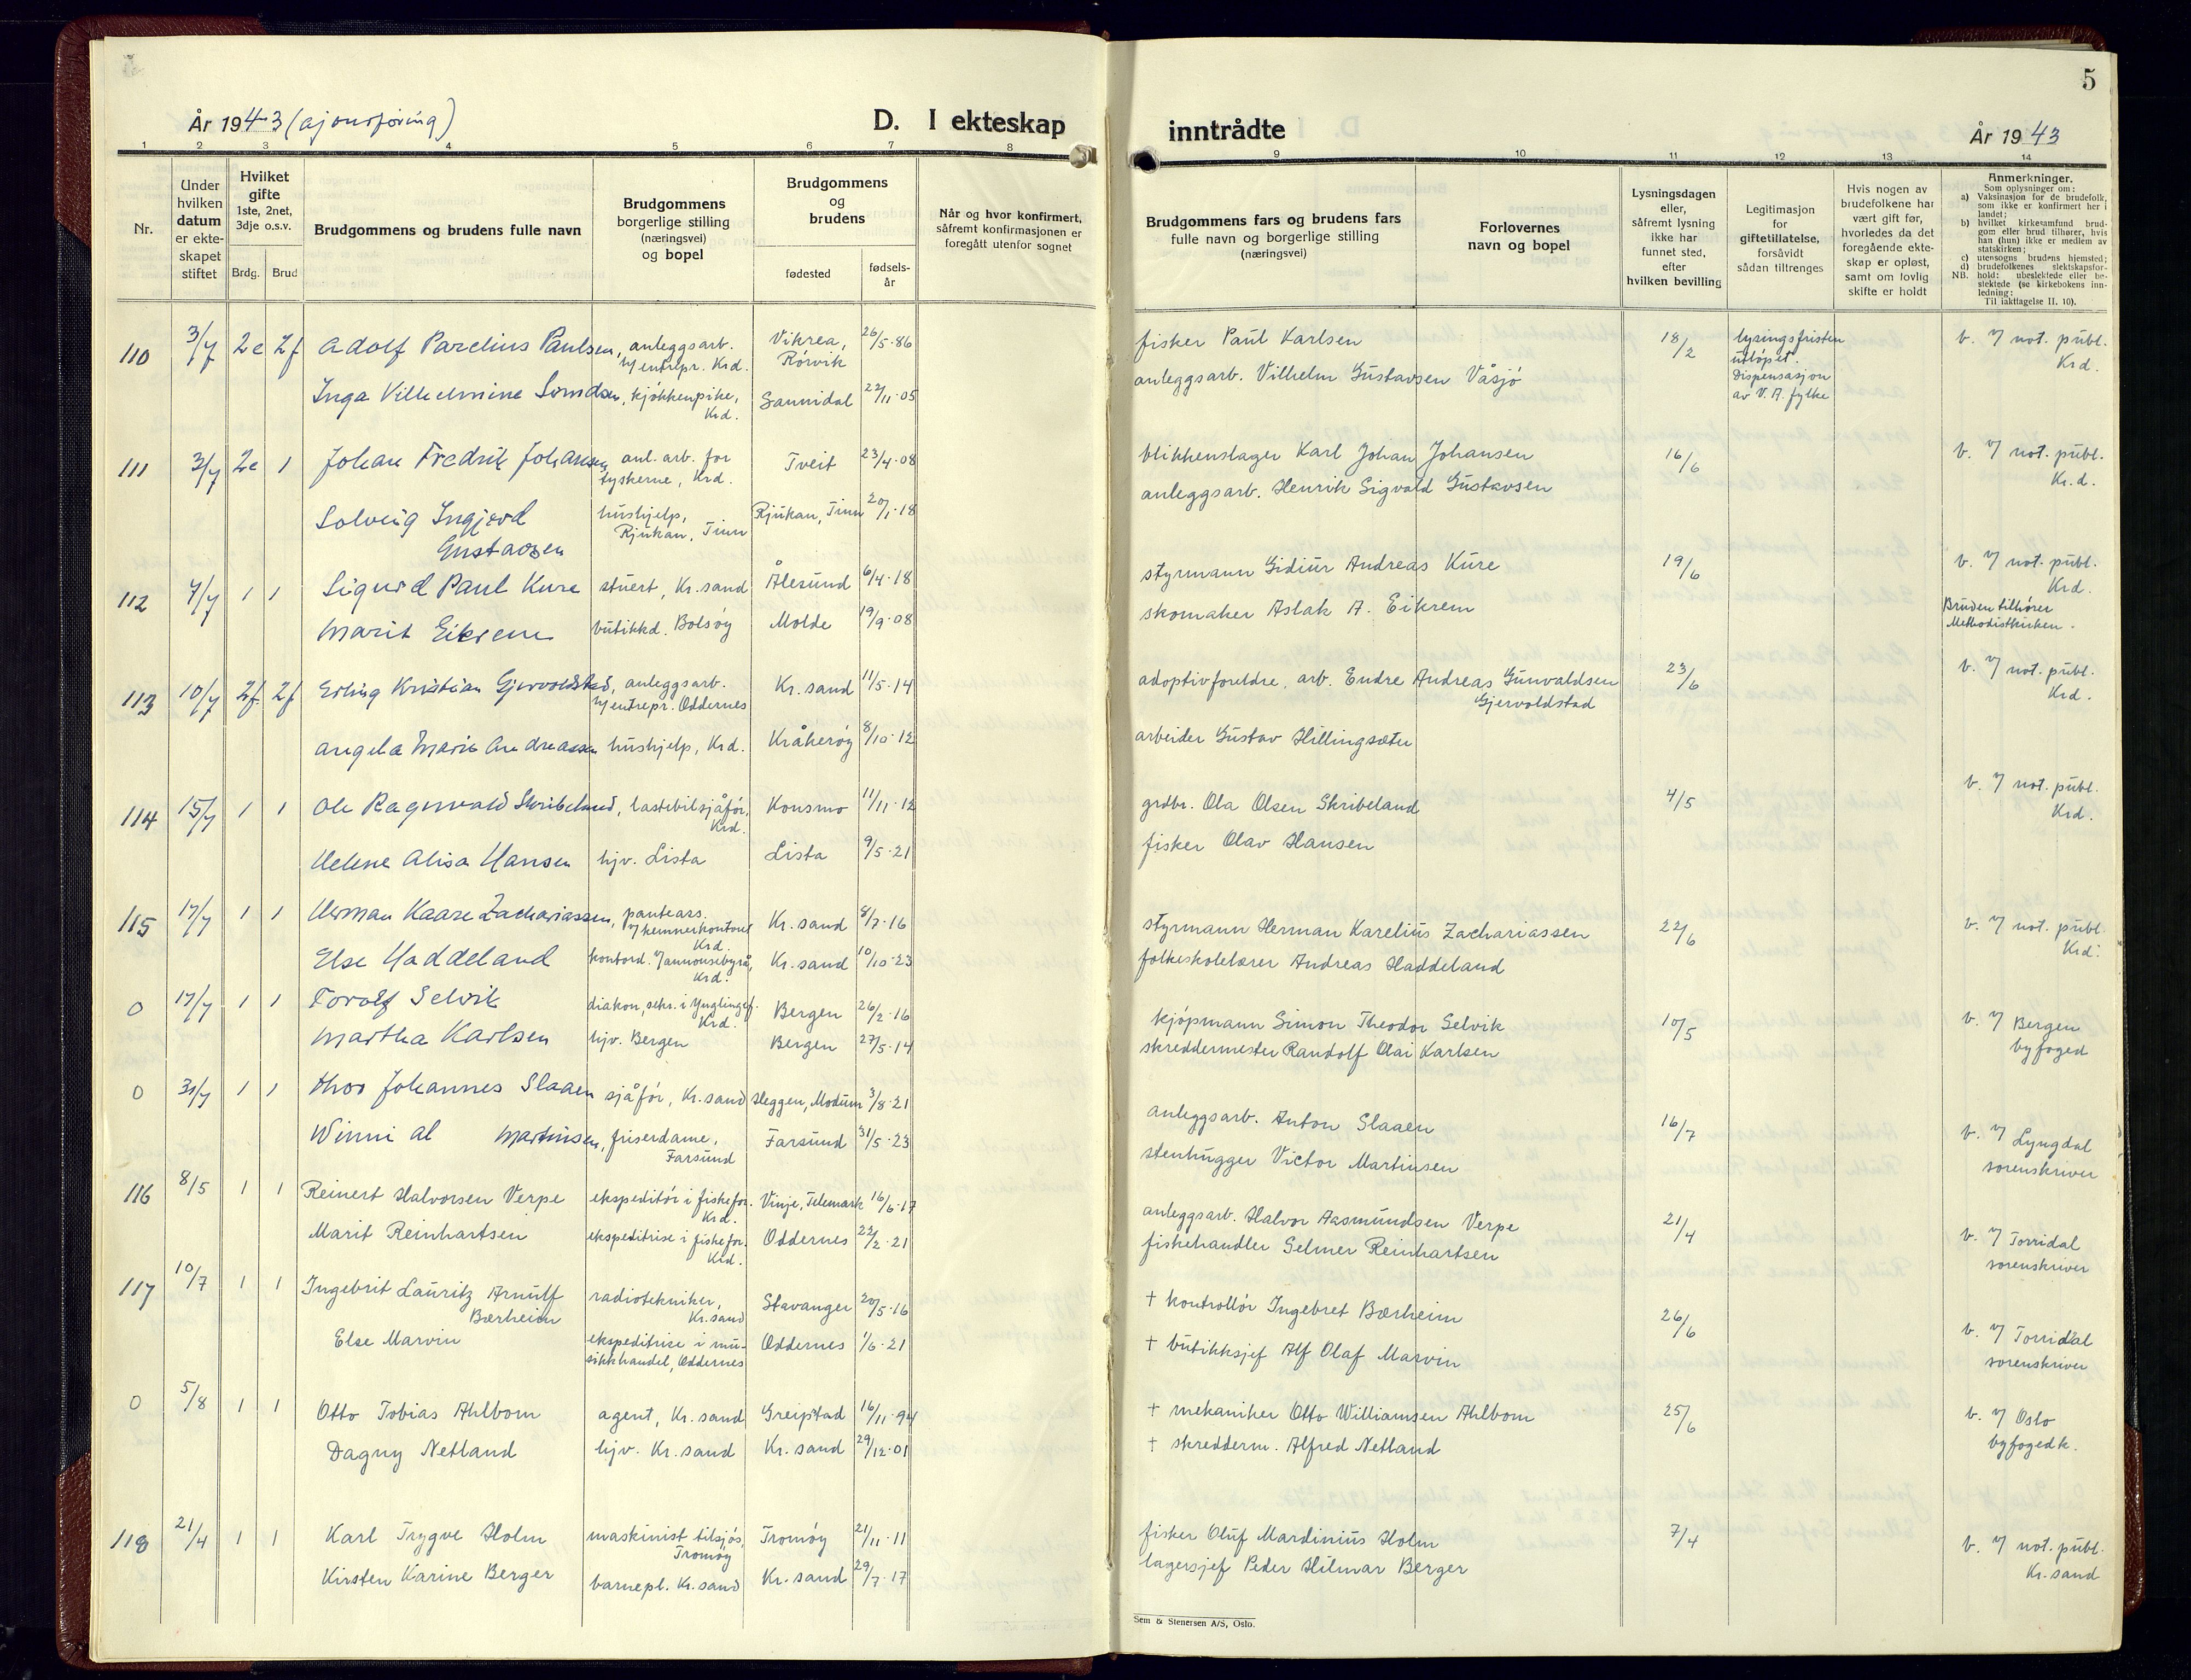 5
År 1943 (ajourføring)
D. I ekteskap
inntrådte
År 1943
1 2 3 4 5 6 7 8 9 10 11 12 13 14
Nr.
Under hvilken datum er ekteskapet stiftet
Hvilket gifte 1ste, 2net, 3dje o.s.v.
Brdg. Brud
Brudgommens og brudens fulle navn
Brudgommens borgerlige stilling (næringsvei) og bopel
Brudgommens og brudens
fødested
fødselsår
Når og hvor konfirmert, såfremt konfirmasjonen er foregått utenfor sognet
Brudgommens fars og brudens fars fulle navn og borgerlige stilling (næringsvei)
Forlovernes navn og bopel
Lysningsdagen eller, såfremt lysning ikke har funnet sted, efter hvilken bevilling
Legitimasjon for giftetillatelse, forsåvidt sådan tiltrenges
Hvis nogen av brudefolkene har vært gift før, hvorledes da det foregående ekteskap er opløst, samt om lovlig skifte er holdt
Anmerkninger.
Som oplysninger om:
a) Vaksinasjon for de brudefolk, som ikke er konfirmert her i landet;
b) hvilket kirkesamfund brudgom eller brud tilhører, hvis han (hun) ikke er medlem av statskirken;
c) utensogns brudens hjemsted;
d) brudefolkenes slektskapsforhold: ubeslektede eller beslektede (se kirkebokens innledning:
NB.
Til iakttagelse II. 10).
110 3/7 2e 2f Adolf Parelius Paulsen, anleggsarb. v/ entrepr. Krd. Vikrea, Rørvik 26/5-86 fisker Paul Karlsen 18/2 lysingsfristen utløpet. Dispensasjon av V. A. fylke b. v/ not. publ. Krd.
Inga Vilhelmine kjøkkenpike, Krd. Sannidal 22/11-05 anleggsarb. Vilhelm Gustavsen Våsjø
111 3/7 2e 1 Johan Fredrik Johansen anl. arb. for tyskerne, Krd. Tveit 23/4-08 blikkenslager Karl Johan Johansen 16/6 b. v/ not. publ. Kr.d.
Solveig Ingjerd Gustavsen hushjelp, Rjukan, Tinn Rjukan, Tinn 20/1-18 anleggsarb. Henrik Sigvald Gustavsen
112 7/7 1 1 Sigurd Paul Kure stuert, Kr.sand Ålesund 6/4-18 styrmann Gidiur Andreas Kure 19/6 b. v/ not. publ. Krd.
Marit Eikrem butikkd. Bolsøy Molde 19/9-08 skomaker Aslak A. Eikrem Bruden tilhører Methodistkirken.
113 10/7 2f. 2f Erling Kristian Gjervoldstad, anleggsarb. v/ entrepr. Oddernes Kr.sand 11/5-14 adoptivforeldre, arb. Endre Andreas Gunvaldsen Gjervoldstad 23/6 b. v/ not. publ. Krd.
Angela Marie Andreassen hushjelp, Krd. Kråkerøy 8/10-12 arbeider Gustav Hillingsæter
114 15/7 1 1 Ole Ragnvald Skribeland, lastebilsjåfør, Krd. Konsmo 11/11-12 grdbr. Ola Olsen Skribeland 4/5 b. v/ not. publ. Krd.
Helene Alisa Hansen hjv. Lista Lista 9/5-21 fisker Olav Hansen
115 17/7 1 1 Herman Kaare Zachariassen, pantears. v/ kemnerkontoret Krd. Kr.sand 8/7-16 styrmann Herman Karelius Zachariassen 22/6 b. v/ not. publ Krd.
Else Haddeland kontord. v/ annonsebyrå, Krd. Kr.sand 10/10-23 folkeskolelærer Andreas Haddeland
0 17/7 1 1 Torolf Selvik diakon, sekr. i Ynglingef. Krd. Bergen 26/2-16 kjøpmann Simon Theodor Selvik 10/5 b. v/ Bergen byfoged
Martha Karlsen hjv. Bergen Bergen 27/5-14 skreddermester Randolf Olai Karlsen
0 31/7 1 1 Thor Johannes Slaaen sjåfør, Kr.sand Heggen, Modum 3/8-21 anleggsarb. Anton Slaaen 16/7 b. v/ Lyngdal sorenskriver
Winni Martinsen, friserdame, Farsund Farsund 31/5-23 stenhugger Victor Martinsen
116 8/5 1 1 Reinert Halvorsen Verpe ekspeditør i fiskefor. Krd. Vinje, Telemark 16/6-17 anleggsarb. Halvor Aasmundsen Verpe 21/4 b. v/ Torridal sorenskriver
Marit Reinhartsen ekspeditrise i fiskefor. Krd. Oddernes 22/2-21 fiskehandler Selmer Reinhartsen
117 10/7 1 1 Ingebrit Lauritz Arnulf Bærheim radiotekniker, Kr.sand Stavanger 20/5-16 † kontrollør Ingebret Bærheim 26/6 b. v/ Torridal sorenskriver
Else Marvin ekspeditrise i musikkhandel, Oddernes Oddernes 1/6-21 † butikksjef Alf Olaf Marvin
0 5/8 1 1 Otto Tobias Ahlbom agent, Kr.sand Greipstad 16/11-94 † mekaniker Otto Williamsen Ahlbom 25/6 b. v/ Oslo byfogedk.
Dagny Netland hjv. Kr.sand Kr.sand 29/12-01 † skredderm. Alfred Netland
118 21/4 1 1 Karl Trygve Holm maskinist tilsjøs, Tromøy Tromøy 21/11-11 fisker Oluf Mardinius Holm 7/4 b. v/ not. publ. Kr.sand
Kirsten Karine Berger barnepl. Kr.sand Kr.sand 29/7-17 lagersjef Peder Hilmar Berger
Sem & Stenersen A/S, Oslo.